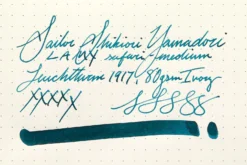 Sailor Shikiori Yamadori
LAMY safari - medium
Leuchtturm 1917, 80gsm Ivory
XXXXX